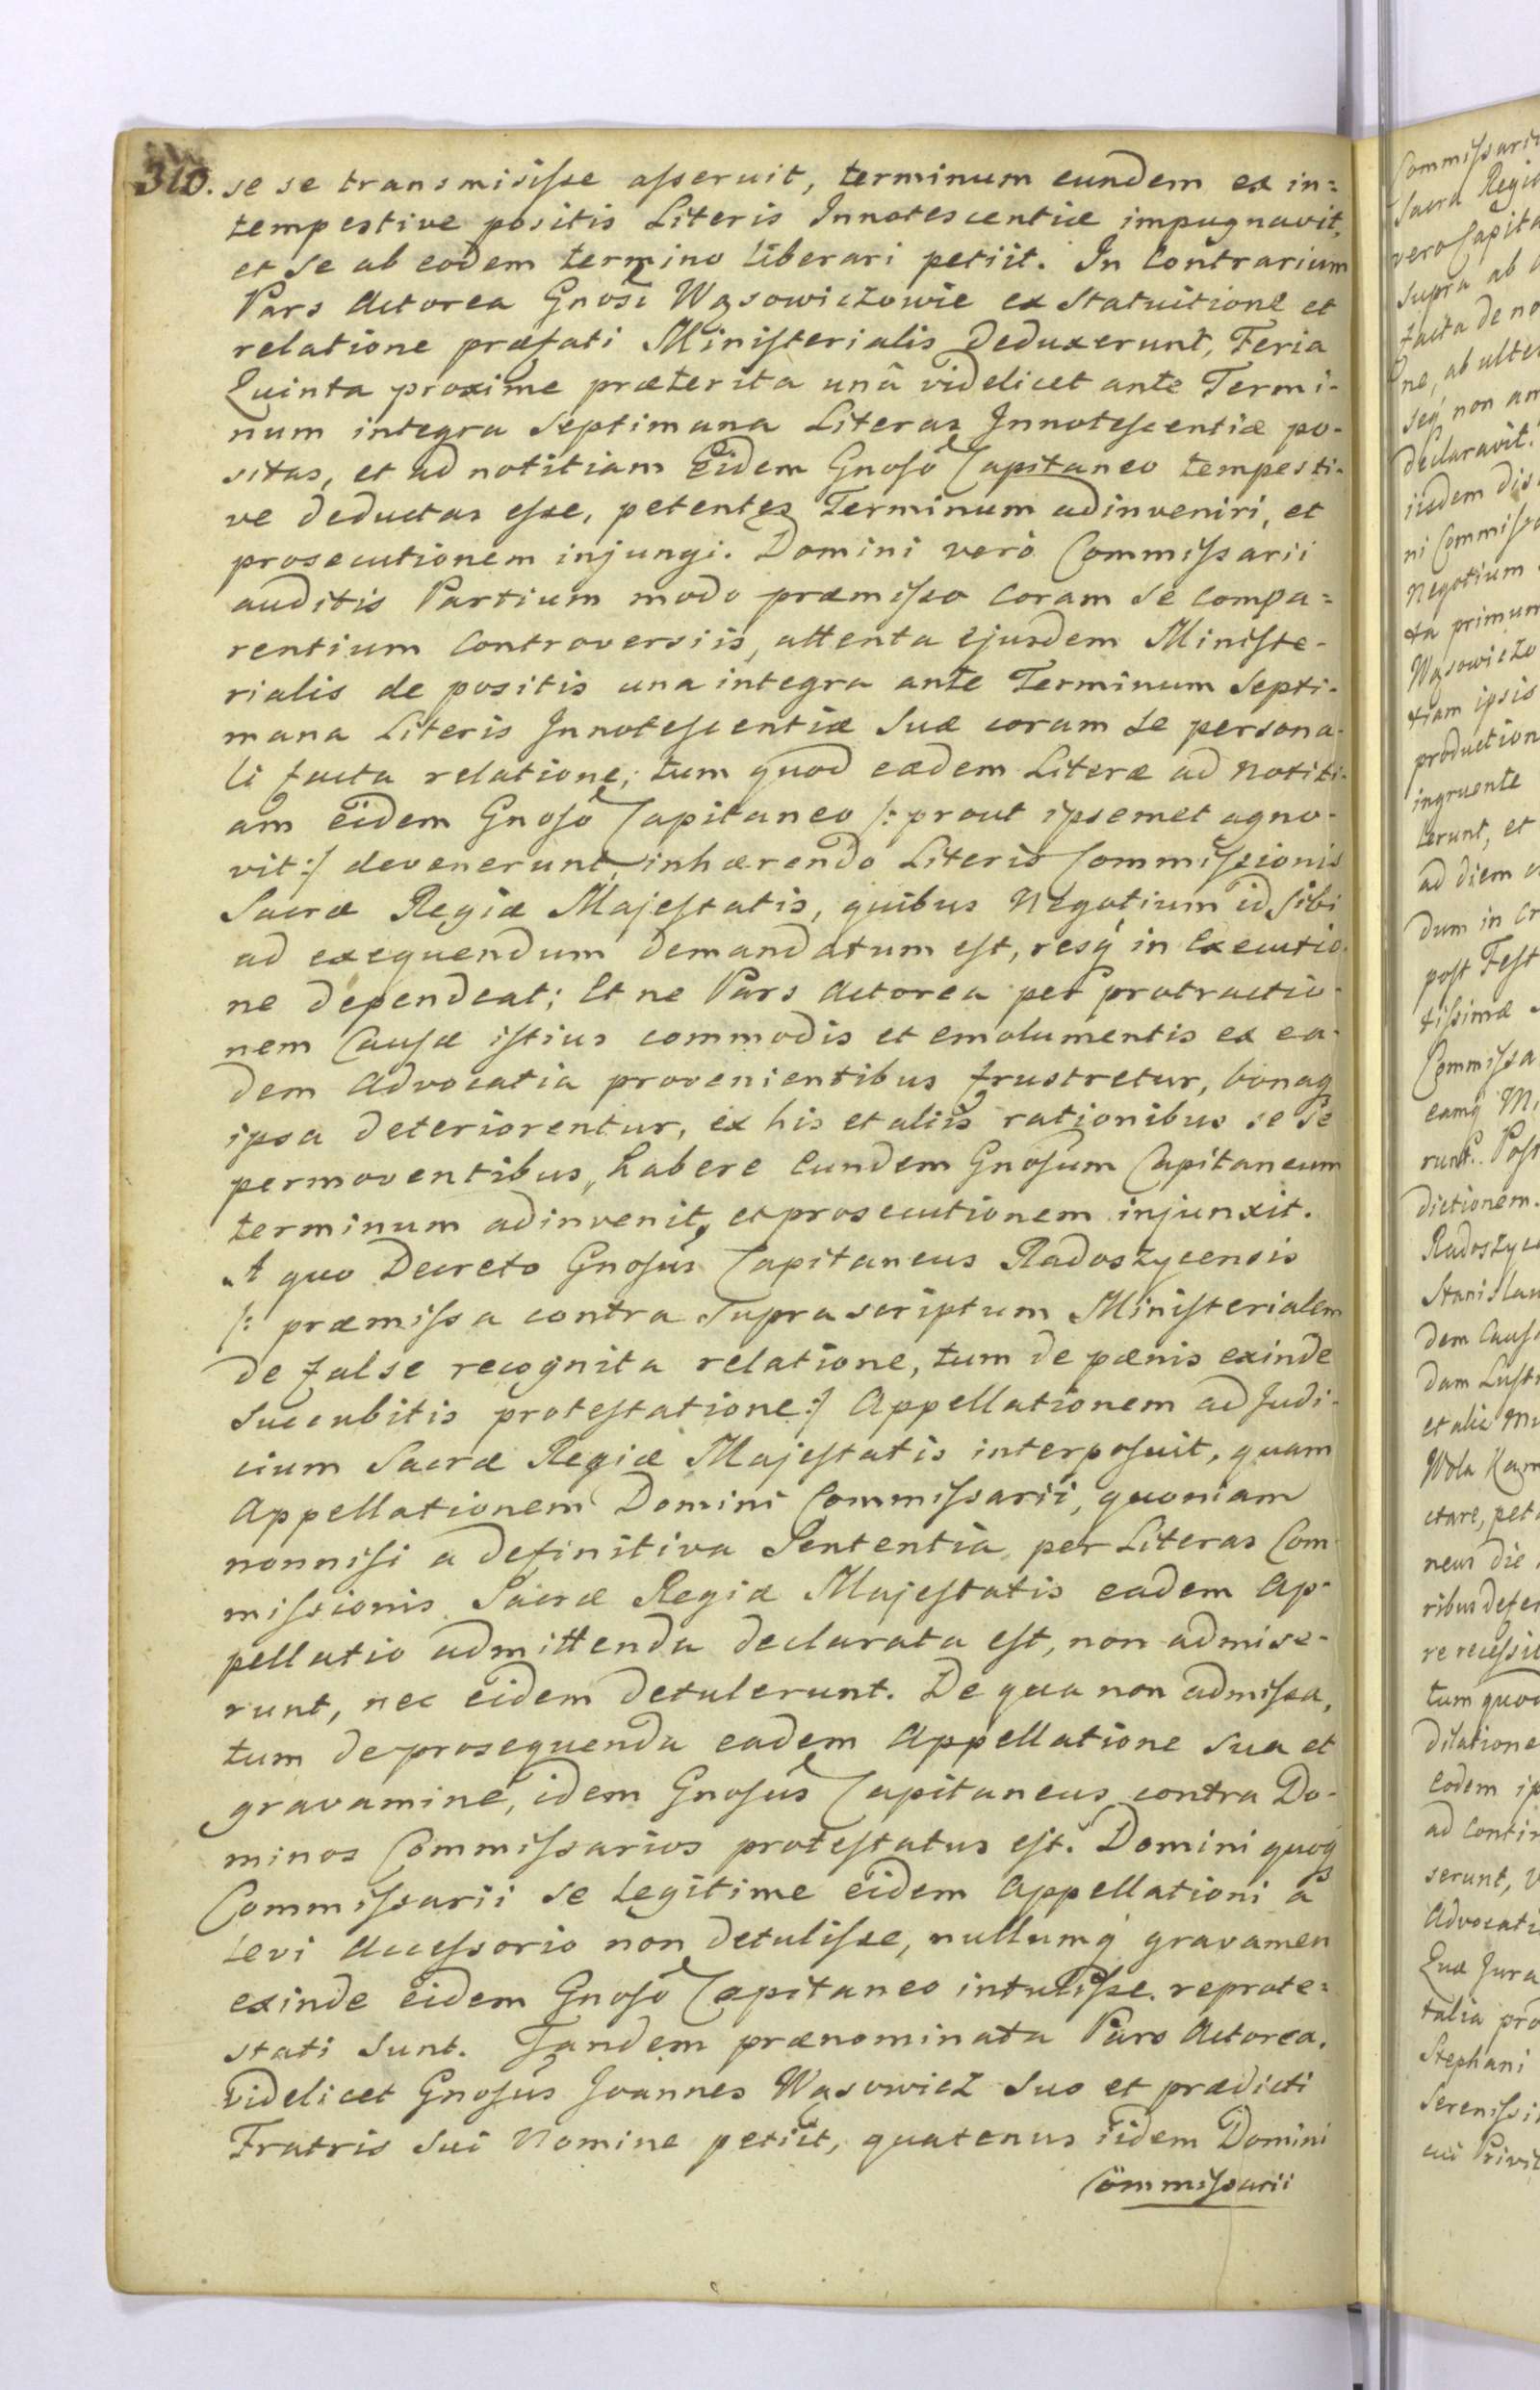 310. se se transmisisse asseruit, terminum eundem ex in=
tempestive positis Literis Innotescentiæ impugnavit,
et Se ab eodem termino liberari petiit. In Contrarium
Pars Actorea Gnosi Wąsowiczowie ex Statuitione et
relatione præfati Ministerialis deduxerunt, Feria
Quinta proxime præterita unâ videlicet ante Termi-
num integra Septimana Literas Innotescentiæ po-
sitas, et ad notitiam Eidem Gnoso Capitaneo tempesti-
ve deductas esse, petentes Terminum adinveniri, et
prosecutionem injungi. Domini verò Commissarii
auditis Partium modo præmisso Coram Se Compa=
rentium Controversiis, attenta Ejusdem Ministe-
rialis de positis una integra ante Terminum Septi-
mana Literis Innotescentiæ Suæ coram Se persona-
li facta relatione; tum quod eædem Literæ ad notiti-
am eidem Gnoso Capitaneo /: prout ipsemet agno-
vit :/ devenerunt, inhærendo Literis Commissionis
Sacræ Regiæ Majestatis, quibus Negotium id Sibi
ad exequendum demandatum est, resq́ in Executio-
ne dependeat; Et ne Pars Actorea per protractio-
nem Causæ istius commodis et emolumentis ex ea-
dem Advocatia provenientibus frustretur, bonaq
ipsa deteriorentur, ex his et aliis rationibus se Se
permoventibus, habere Eundem Gnosum Capitaneum
terminum adinvenit, et prosecutionem injunxit.
A quo Decreto Gnosus Capitaneus Radoszycensis
/: præmissa contra Suprascriptum Ministerialem
de false recognita relatione, tum de pænis exinde
Succubitis protestatione :/ Appellationem ad Judi-
cium Sacræ Regiæ Majestatis interposuit, quam
Appellationem Domini Commissarii, quoniam
nonnisi a definitiva Sententia per Literas Com-
missionis Sacræ Regiæ Majestatis eadem Ap-
pellatio admittenda declarata est, non admise-
runt, nec eidem detulerunt. De qua non admissa,
tum de prosequenda eadem Appellatione Sua et
gravamine, idem Gnosus Capitaneus contra Do-
minos Commissarios protestatus est. Domini quoq
Commissarii Se Legitime eidem Appellationi à
Levi Accessorio non detulisse, nullumq́ gravamen
exinde eidem Gnoso Capitaneo intulisse reprote=
stati Sunt. Tandem prænominata Pars Actorea,
videlicet Gnosus Joannes Wąsowicz Suo et prædicti
Fratris Sui Nomine petiit, quatenus iidem Domini
Commissarii
Commissarii
Sacra Regia
vero Capita
Supra ab
facta de no
ne, ab ulte
seq́ non am
declaravit.
iisdem dis
ni Commissa
Negotium
ta primum
Wąsowiczo
tiam ipsis
production
ingruente
lerunt, et
ad diem
dum in Cr
post Fest
tissimæ
Commissa
eamq́ M
runt. Post
dictionem.
Radoszyc
Stanislau
dem Causa
dam Lustr
et alia Mu
Wola Kam
ctare, pet
neus die
ribus defer
re recessit
tum quod
dilatione
Eodem ip
ad Contin
serunt, V
Advocati
Quæ Jura
talia pro
Stephani
Serenissi
cui Privil